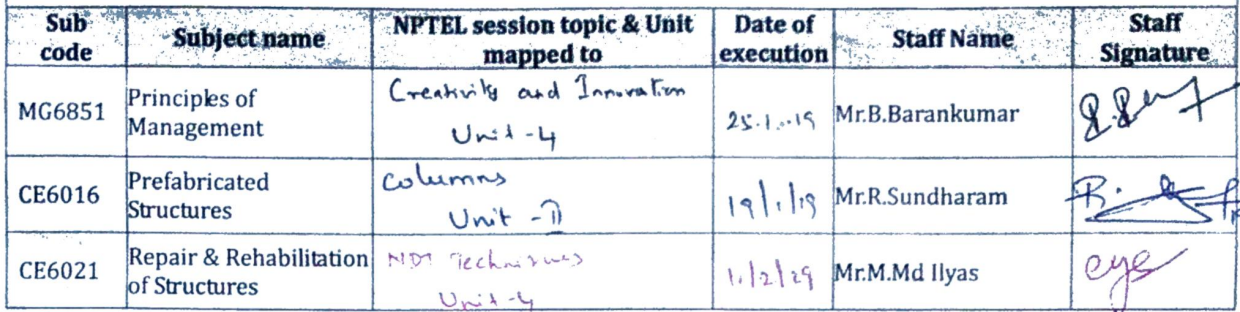 Sub code | Subject name | NPTEL session topic & Unit mapped to | Date of execution | Staff Name | Staff Signature
MG6851 | Principles of Management | Creativity and Innovation Unit-4 | 25.1.19 | Mr.B.Barankumar
CE6016 | Prefabricated Structures | Columns Unit-II | 19/1/19 | Mr.R.Sundharam
CE6021 | Repair & Rehabilitation of Structures | NDT Techniques Unit-4 | Mr.M.Md Ilyas